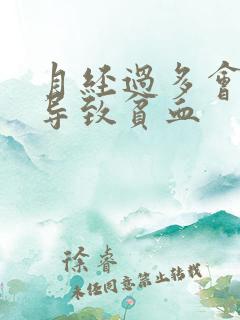 月经過多會
导致貧血
徐睿
未经同意禁止转载